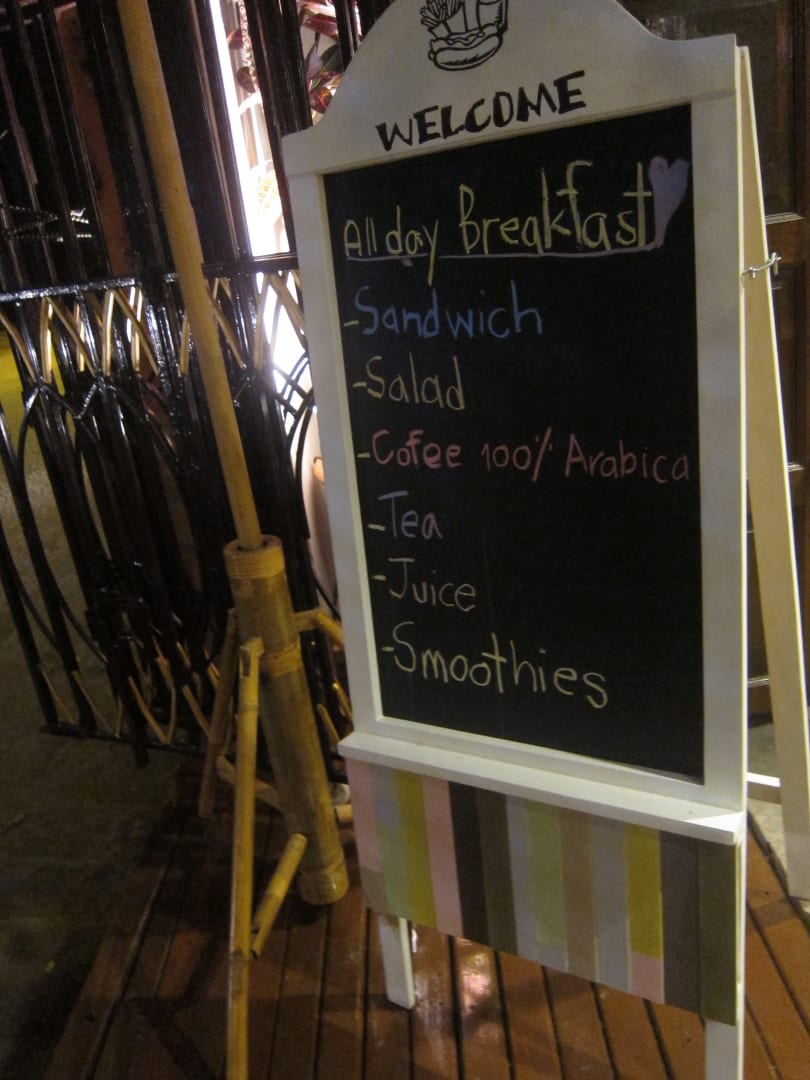 WELCOME
All day Breakfast
-Sandwich
-Salad
-Cofee 100% Arabica
-Tea
-Juice
-Smoothies